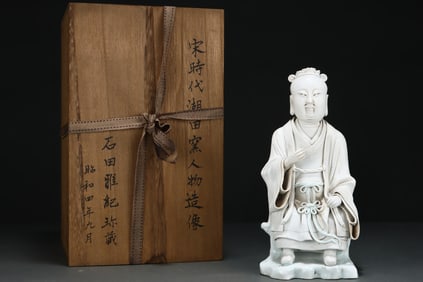 宋時代湖田窯人物造像
石田雅記珍蔵
昭和四年九月